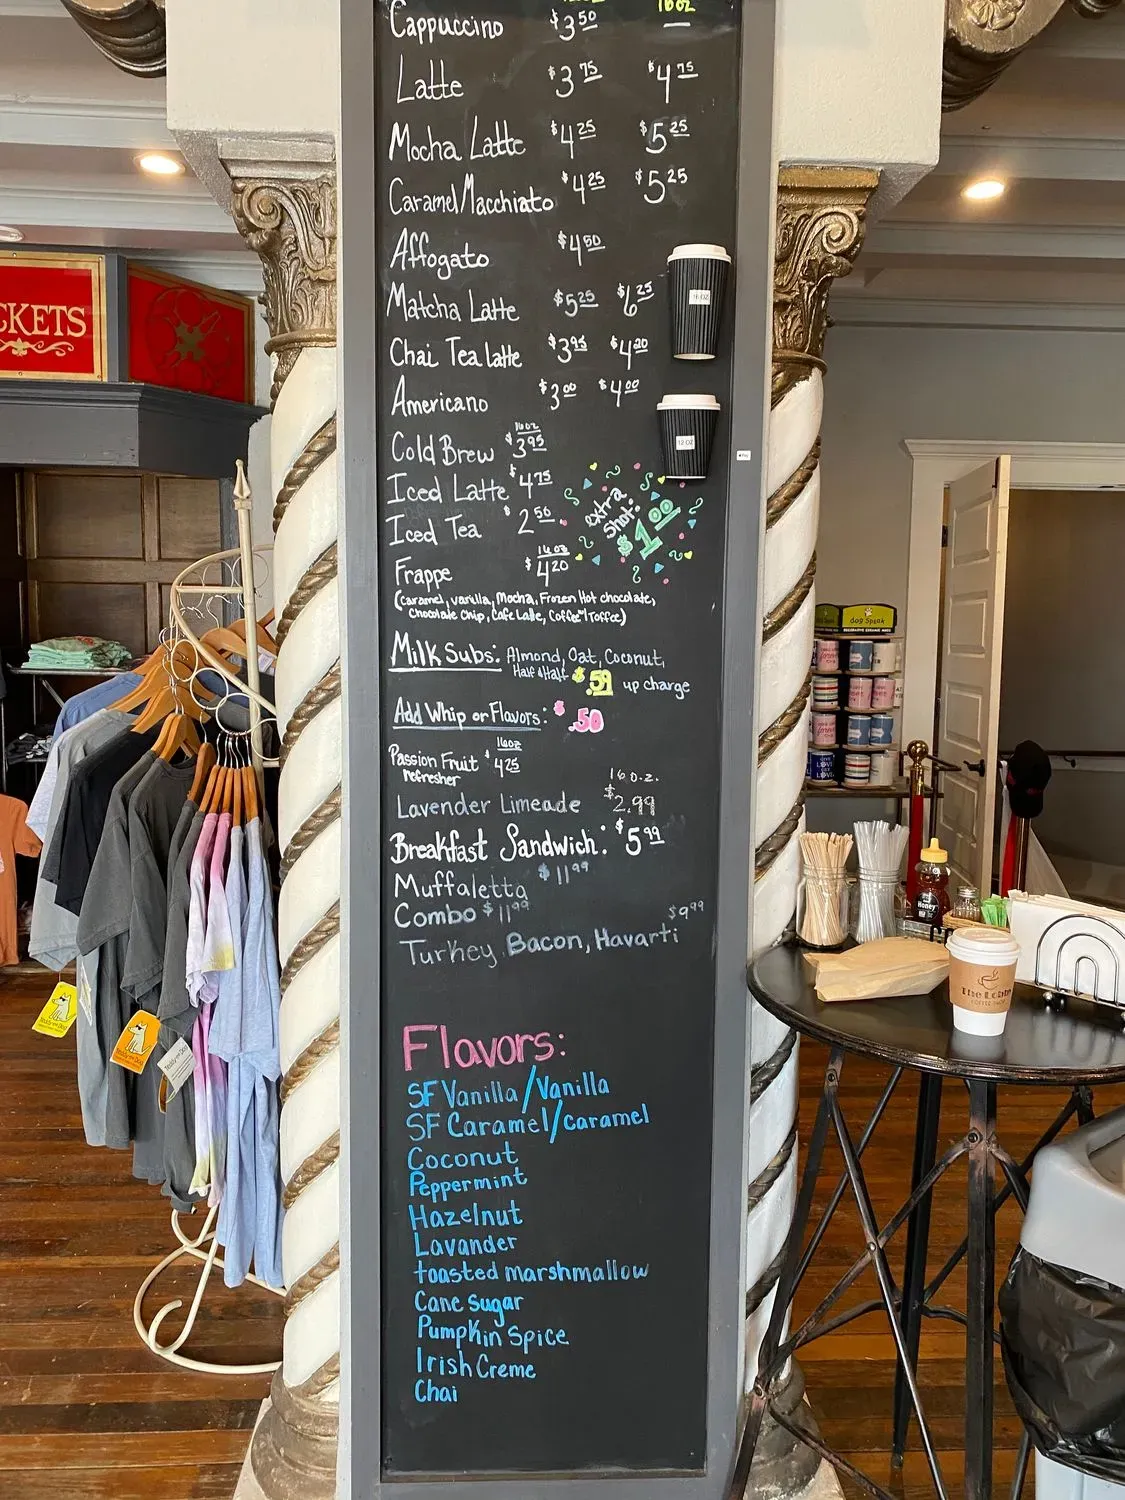 16oz
Cappuccino $3.50 —
Latte $3.75 $4.75
Mocha Latte $4.25 $5.25
Caramel Macchiato $4.25 $5.25
Affogato $4.50
Matcha Latte $5.25 $6.25
16 OZ
Chai Tea Latte $3.95 $4.20
Americano $3.00 $4.00
12 OZ
16oz
Cold Brew $3.95
Iced Latte $4.75
extra shot: $1.00
Iced Tea $2.50
16oz
Frappe $4.20
(Caramel, vanilla, Mocha, Frozen Hot chocolate,
Chocolate Chip, Cafe Latte, Coffee Toffee)
Milk Subs: Almond, Oat, Coconut,
Half & Half $.59 up charge
Add Whip or Flavors: $.50
16oz
Passion Fruit $4.25
Refresher
16oz.
Lavender Limeade $2.99
Breakfast Sandwich: $5.99
Muffaletta $11.99
Combo $11.99
$9.99
Turkey, Bacon, Havarti
Flavors:
SF Vanilla/Vanilla
SF Caramel/caramel
Coconut
Peppermint
Hazelnut
Lavander
toasted marshmallow
Cane sugar
Pumpkin Spice
Irish Creme
Chai
CKETS
dog Speak
Honey
The Lobby